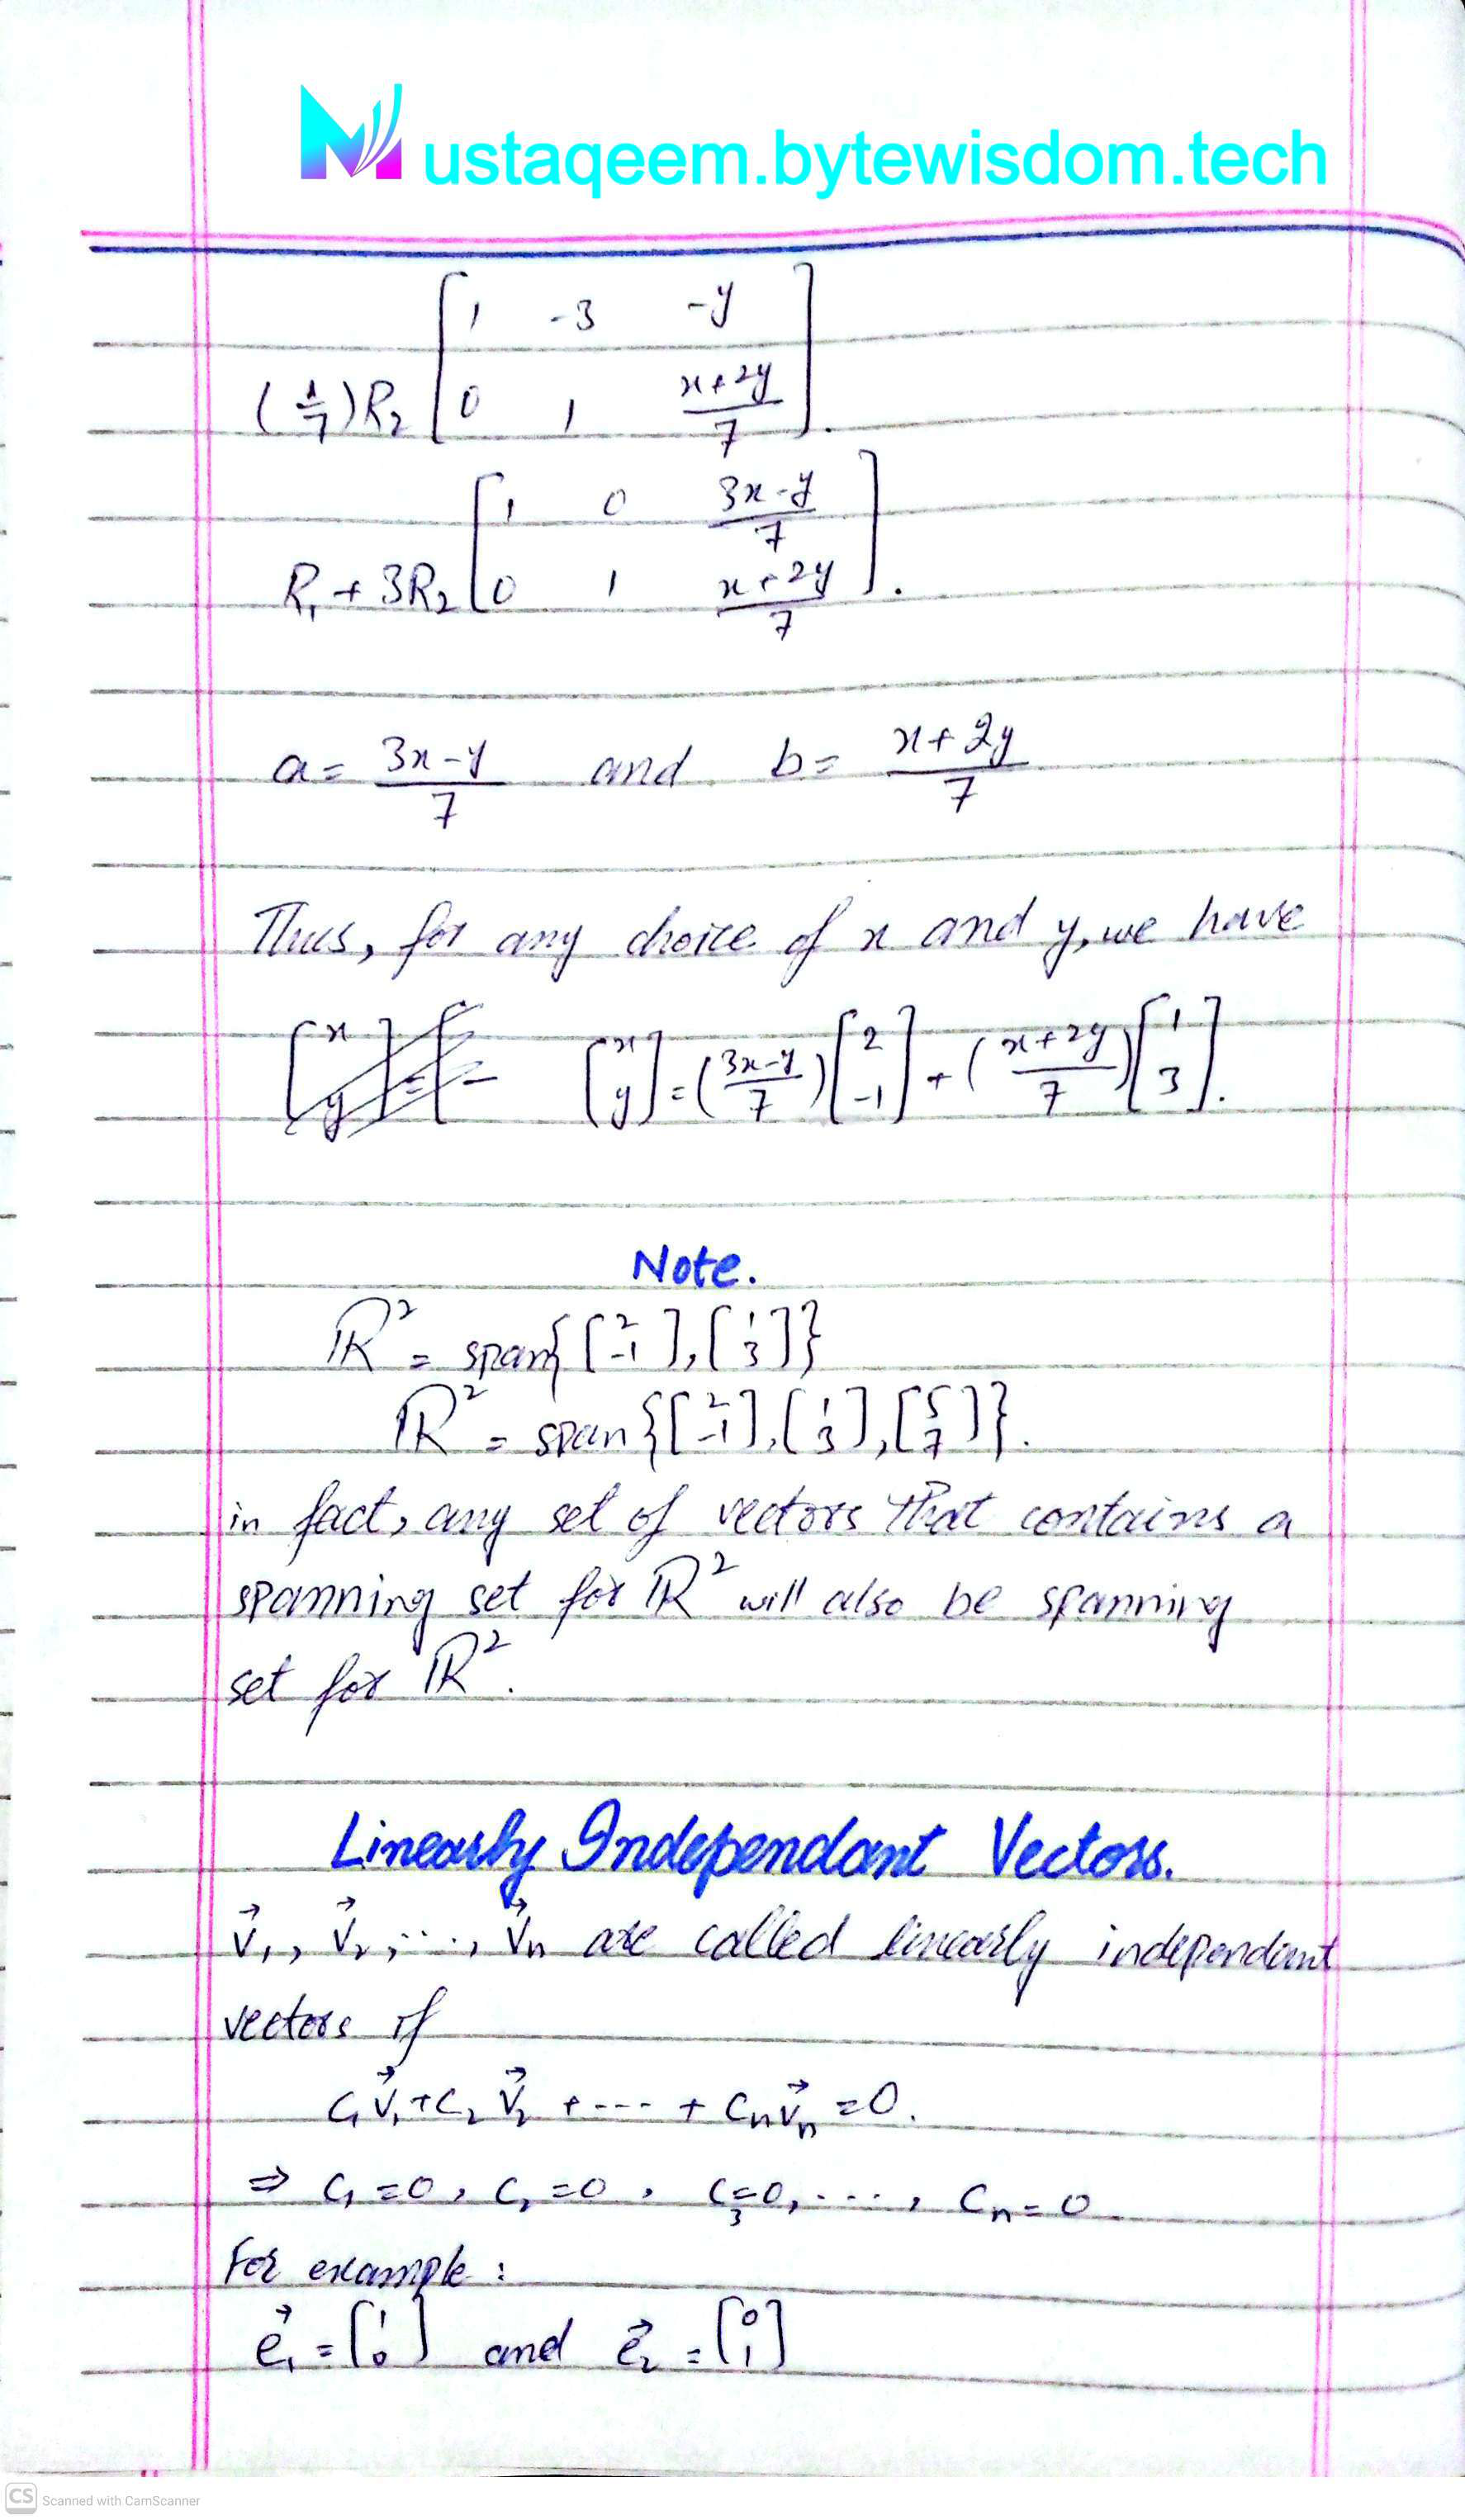 Mustaqeem.bytewisdom.tech
[1 -3 -y]
(1/7)R₂ [0 1 (x+2y)/7].
[1 0 (3x-y)/7]
R₁+3R₂ [0 1 (x+2y)/7].
a= (3x-y)/7 and b= (x+2y)/7
Thus, for any choice of x and y, we have
[x y]=((3x-y)/7)[2 -1]+((x+2y)/7)[1 3].
Note.
ℝ² = span{[2 -1],[1 3]}
ℝ² = span{[2 -1],[1 3],[5 7]}.
in fact, any set of vectors that contains a
spanning set for ℝ² will also be spanning
set for ℝ².
Linearly Independant Vectors.
v⃗₁, v⃗₂, ..., v⃗n are called linearly independant
vectors if
c₁v⃗₁+c₂v⃗₂ + --- + cnv⃗n =0.
⇒ c₁=0, c₂=0, c₃=0, ..., cn=0.
For example:
e⃗₁ = [1 0] and e⃗₂ = [0 1]
CS Scanned with CamScanner